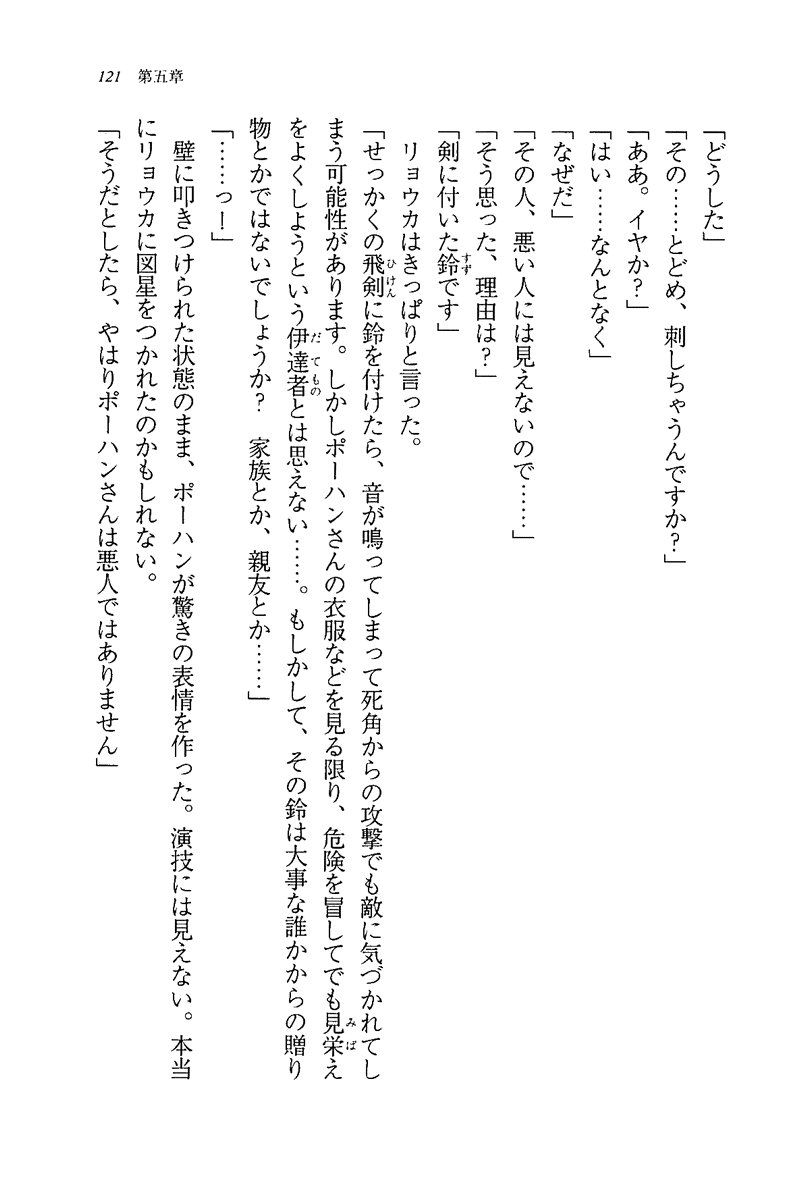 121 第五章
「どうした」
「その……とどめ、刺しちゃうんですか?」
「ああ。イヤか?」
「はい……なんとなく」
「なぜだ」
「その人、悪い人には見えないので……」
「そう思った、理由は?」
「剣に付いた鈴です」
リョウカはきっぱりと言った。
「せっかくの飛剣に鈴を付けたら、音が鳴ってしまって死角からの攻撃でも敵に気づかれてし
まう可能性があります。しかしポーハンさんの衣服などを見る限り、危険を冒してでも見栄え
をよくしようという伊達者とは思えない……。もしかして、その鈴は大事な誰かからの贈り
物とかではないでしょうか? 家族とか、親友とか……」
「……っ!」
壁に叩きつけられた状態のまま、ポーハンが驚きの表情を作った。演技には見えない。本当
にリョウカに図星をつかれたのかもしれない。
「そうだとしたら、やはりポーハンさんは悪人ではありません」